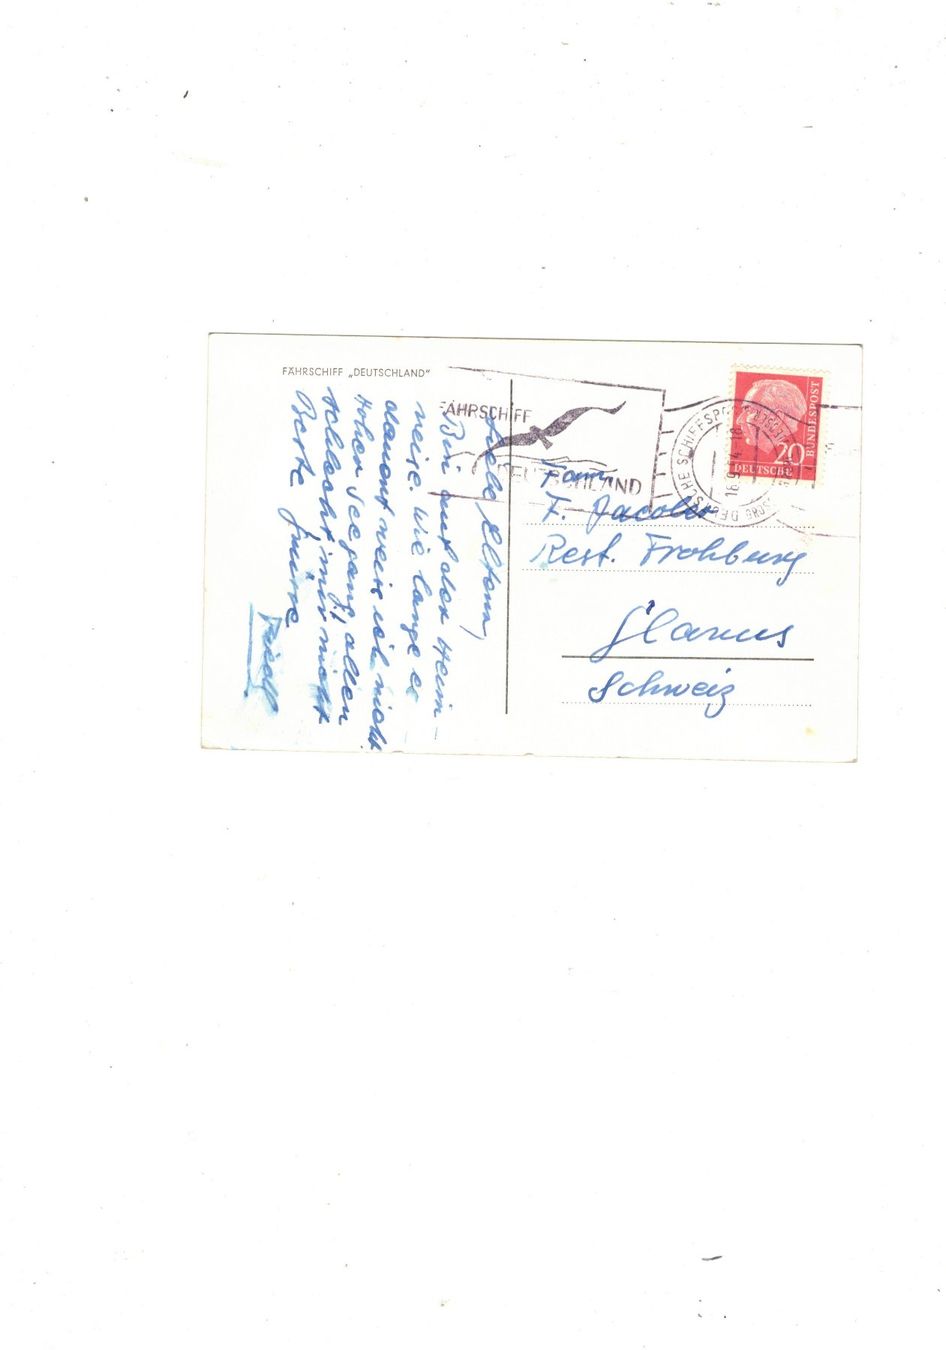 FÄHRSCHIFF „DEUTSCHLAND"
Liebe Eltern,
Bin auf der Heim-
reise. Wie lange es
dauert weiss ich nicht
Hohen Seegang! allen
schlecht mir nicht
Beste Grüsse
FÄHRSCHIFF
DEUTSCHLAND
DEUTSCHE SCHIFFSPOST
16.9.
20
DEUTSCHE
BUNDESPOST
Fam.
F. Jacober
Rest. Frohburg
Glarus
Schweiz